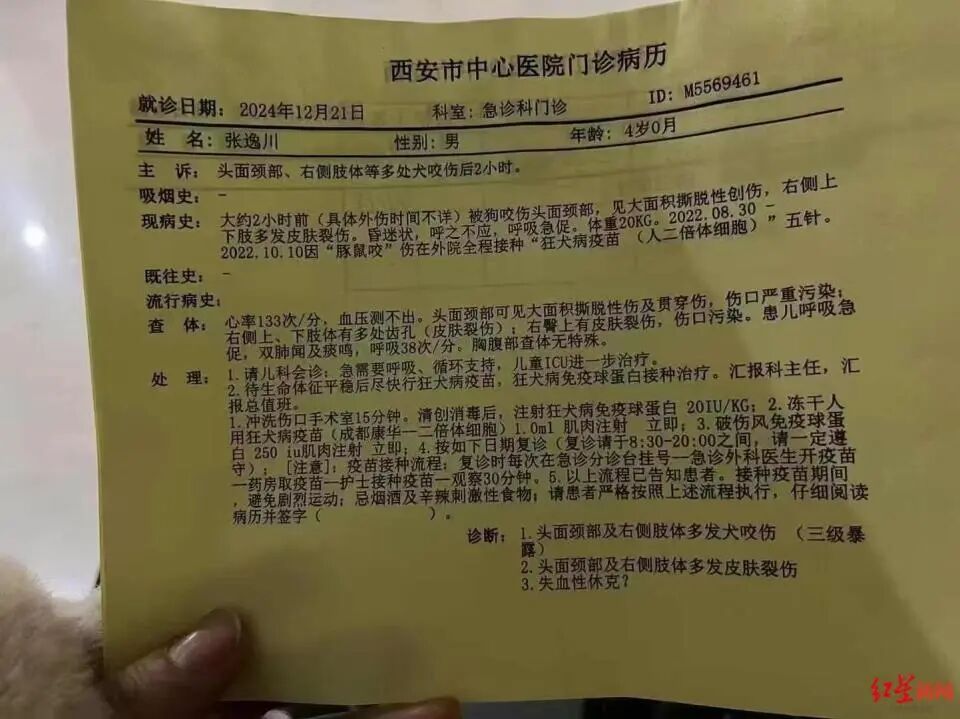 西安市中心医院门诊病历
就诊日期: 2024年12月21日 科室: 急诊科门诊 ID: M5569461
姓 名: 张逸川 性别: 男 年龄: 4岁0月
主 诉: 头面颈部、右侧肢体等多处犬咬伤后2小时。
吸烟史: -
现病史: 大约2小时前（具体外伤时间不详）被狗咬伤头面颈部，见大面积撕脱性创伤，右侧上
下肢多发皮肤裂伤。昏迷状，呼之不应，呼吸急促。体重20KG。2022.08.30 -
2022.10.10因“豚鼠咬”伤在外院全程接种“狂犬病疫苗 （人二倍体细胞）”五针。
既往史: -
流行病史:
查 体: 心率133次/分，血压测不出。头面颈部可见大面积撕脱性伤及贯穿伤，伤口严重污染；
右侧上、下肢体有多处齿孔（皮肤裂伤）；右臀上有皮肤裂伤，伤口污染。患儿呼吸急
促，双肺闻及痰鸣，呼吸38次/分。胸腹部查体无特殊。
处 理: 1.请儿科会诊；急需要呼吸、循环支持，儿童ICU进一步治疗。
2.待生命体征平稳后尽快行狂犬病疫苗，狂犬病免疫球蛋白接种治疗。汇报科主任，汇
报总值班。
1.冲洗伤口手术室15分钟。清创消毒后，注射狂犬病免疫球蛋白 20IU/KG；2.冻干人
用狂犬病疫苗（成都康华一二倍体细胞）1.0ml 肌肉注射 立即；3.破伤风免疫球蛋
白 250 iu肌肉注射 立即；4.按如下日期复诊（复诊请于8:30-20:00之间，请一定遵
守）；[注意]：疫苗接种流程：复诊时每次在急诊分诊台挂号一急诊外科医生开疫苗
一药房取疫苗一护士接种疫苗一观察30分钟。5.以上流程已告知患者。接种疫苗期间
，避免剧烈运动；忌烟酒及辛辣刺激性食物；请患者严格按照上述流程执行，仔细阅读
病历并签字（ ）。
诊断: 1.头面颈部及右侧肢体多发犬咬伤 （三级暴
露）
2.头面颈部及右侧肢体多发皮肤裂伤
3.失血性休克？
红星新闻